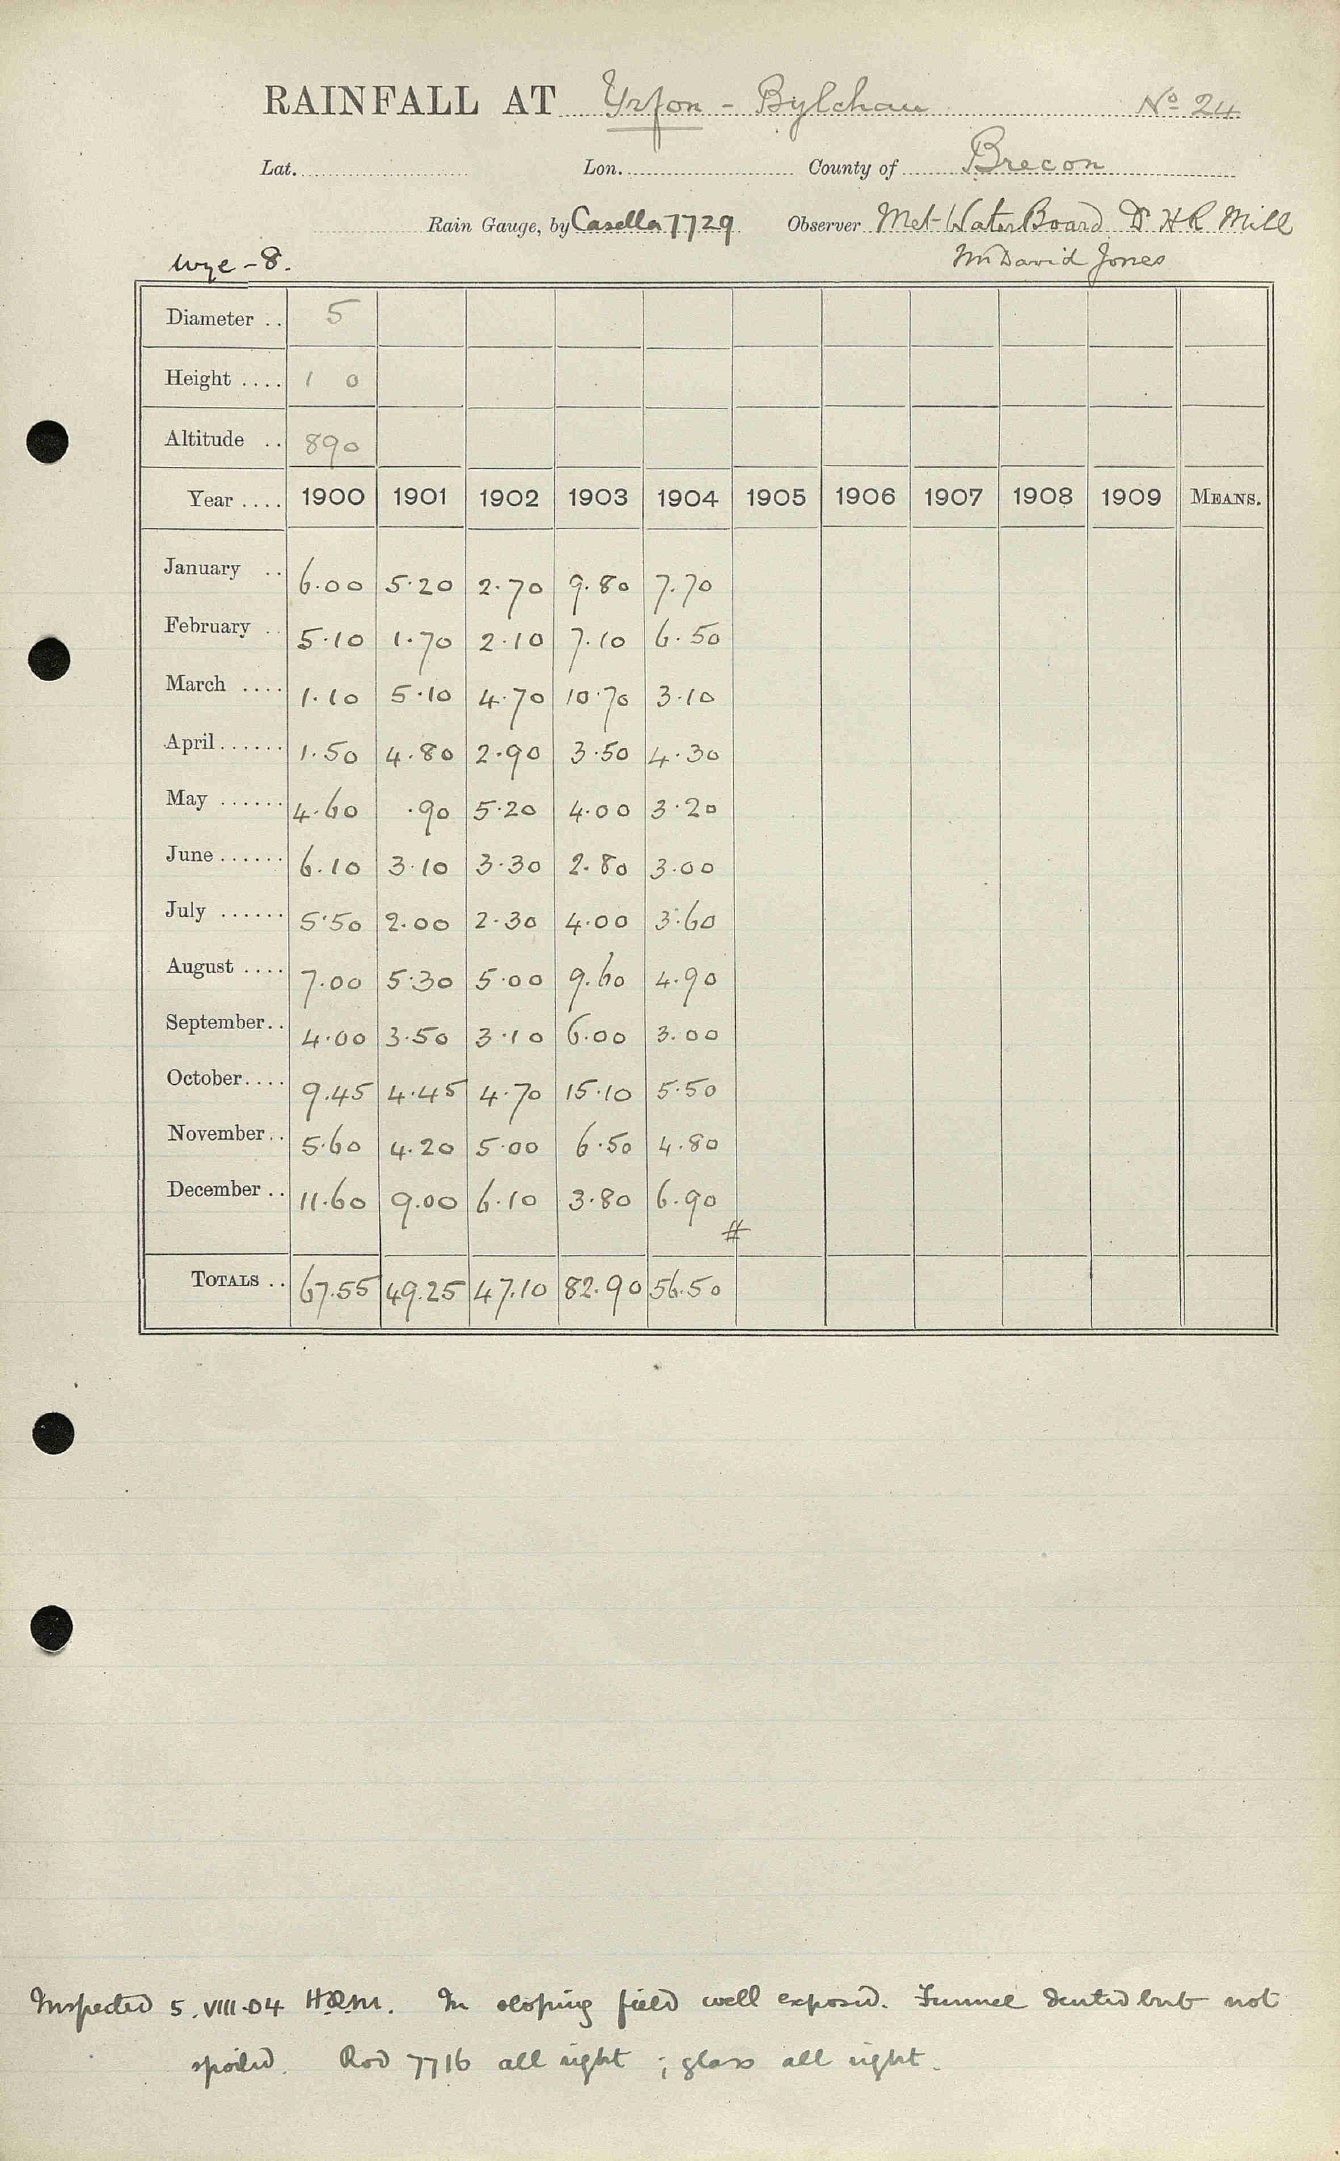 RAINFALL AT Yrfon - Bylchau No 24
Lat. Lon. County of Brecon
Rain Gauge, by Casella 7729 Observer Met. Water Board Dr H R Mill
Wye - 8. Mr David Jones
Diameter .. 5
Height .... 1 0
Altitude .. 890
Year .... 1900 1901 1902 1903 1904 1905 1906 1907 1908 1909 MEANS.
January .. 6.00 5.20 2.70 9.80 7.70
February .. 5.10 1.70 2.10 7.10 6.50
March .... 1.10 5.10 4.70 10.70 3.10
April ...... 1.50 4.80 2.90 3.50 4.30
May ...... 4.60 .90 5.20 4.00 3.20
June ...... 6.10 3.10 3.30 2.80 3.00
July ...... 5.50 2.00 2.30 4.00 3.60
August .... 7.00 5.30 5.00 9.60 4.90
September .. 4.00 3.50 3.10 6.00 3.00
October .... 9.45 4.45 4.70 15.10 5.50
November .. 5.60 4.20 5.00 6.50 4.80
December .. 11.60 9.00 6.10 3.80 6.90
#
TOTALS .. 67.55 49.25 47.10 82.90 56.50
Inspected 5.VIII.04 H.R.M. In sloping field well exposed. Funnel dented but not
spoiled. Rod 7716 all right ; glass all right.